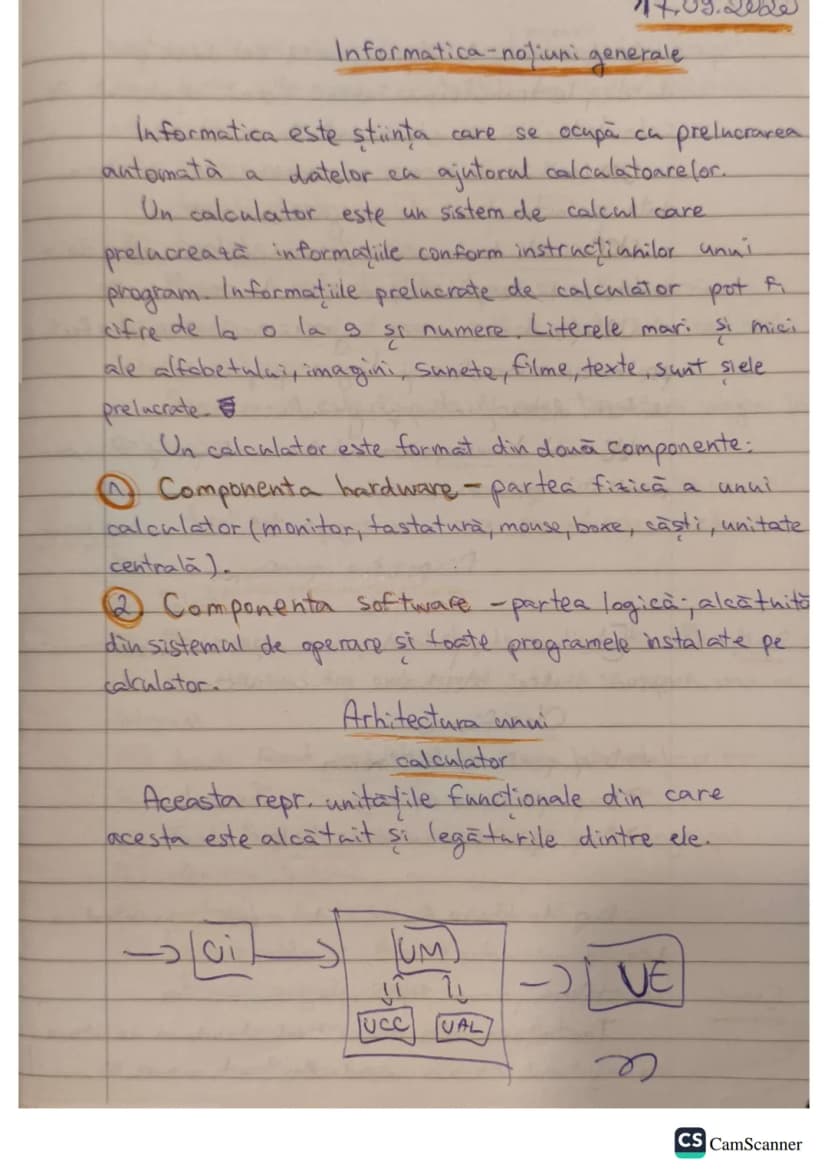 Informatica-noțiuni generale
Informatica este știința care se ocupă cu prelucrarea
automată a datelor cu ajutorul calculatoarelor.
Un calculator este un sistem de calcul care
prelucrează informațiile conform instrucțiunilor unui
program. Informațiile prelucrate de calculator pot fi
cifre de la 0 la 9 și numere. Literele mari și mici
ale alfabetului, imagini, sunete, filme, texte, sunt și ele
prelucrate.
Un calculator este format din două componente:
① Componenta hardware - partea fizică a unui
calculator (monitor, tastatură, mouse, boxe, căști, unitate
centrală).
② Componenta software - partea logică; alcătuită
din sistemul de operare și toate programele instalate pe
calculator.
Arhitectura unui
calculator
Aceasta repr. unitățile funcționale din care
acesta este alcătuit și legăturile dintre ele.
UM
UE
UCC UAL
CS CamScanner